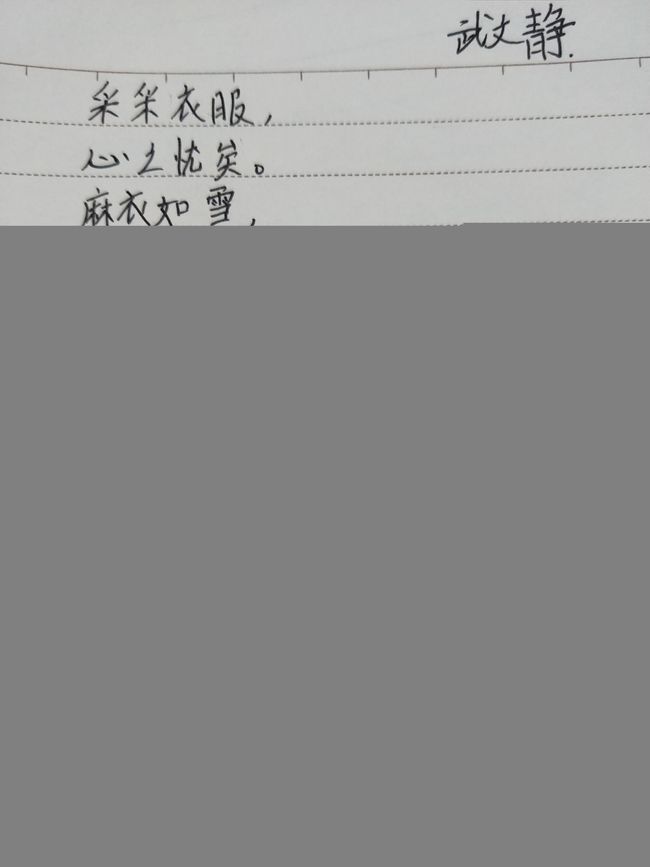 武文静.
采采衣服，
心之忧矣。
麻衣如雪，